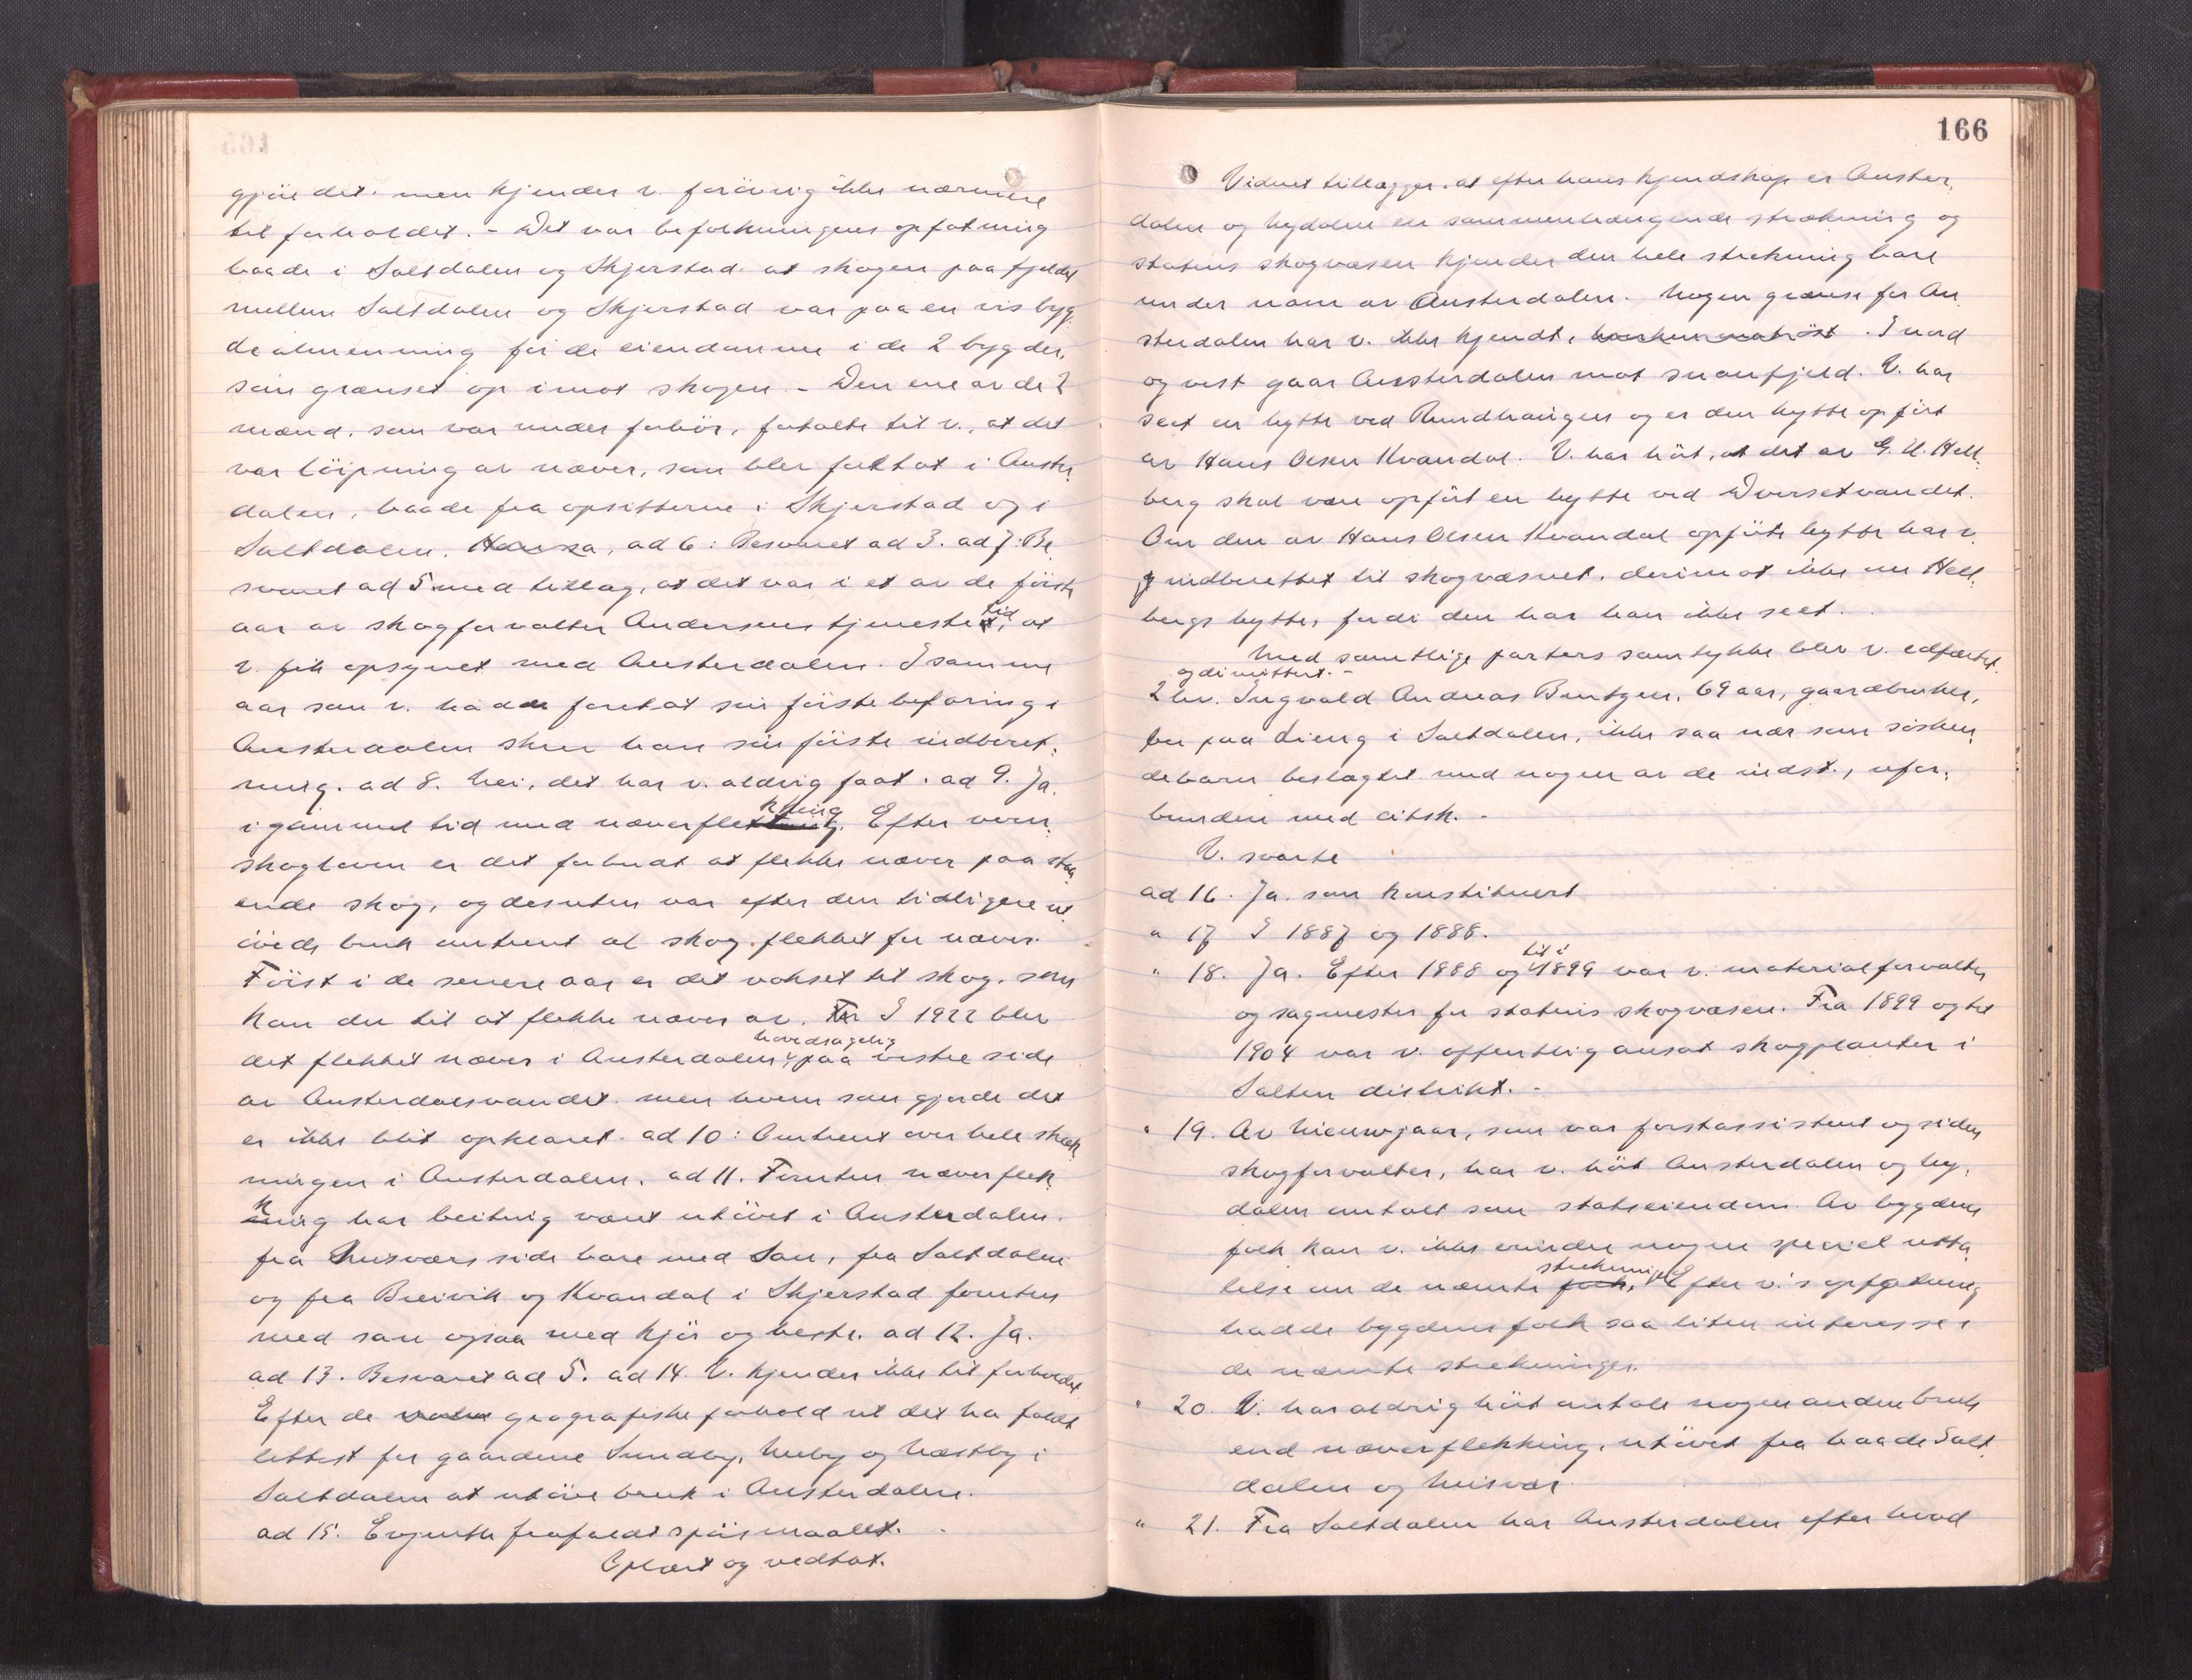 gjöre det. men kjender v. forövrig ikke nærmere
til forholdet. - Det var befolkningens opfatning
baade i Saltdalen og Skjerstad at skogen paa fjeldet
mellem Saltdalen og Skjerstad var paa en vis byg
dealmenning for de eiendomme i de 2 bygder,
som grænset op imot skogen. - Den ene av de 2
mænd, som var under forhör, fortalte til v., at det
var löipning av næver, som blev foretat i Auster
dalen, baade fra opsitterne i Skjerstad og i
Saltdalen. ad 6: Besvaret ad 3. ad 7: Be
svaret ad 5 med tillæg, at det var i et av de förste
aar av skogforvalter Andersens tjenestetid, at
v. fik opsynet med Austerdalen. I samme
aar som v. hadde foretat sin förste befaring i
Austerdalen skrev han sin förste indberet-
ning. ad 8. Nei, det har v. aldrig faat. ad 9. Ja.
i gammel tid med næverflekking. Efter vern
skogloven er det forbudt at flekke næver paa sta
ende skog, og desuten var efter den tidligere ut
övede bruk omtrent al skog flekket for næver.
Först i de senere aar er det vokset til skog, som
kan du til at flekke næver av. I 1922 blev
det flekket næver i Austerdalen hovedsagelig paa vestre side
av Austerdalsvandet men hvem som gjorde det
er ikke blit opklaret. ad 10: Omtrent over hele stræk
ningen i Austerdalen. ad 11. Foruten næverflek
king har beitning været utövet i Austerdalen.
fra Misværs side bare med Sau, fra Saltdalen
og fra Breivik og Kvandal i Skjerstad foruten
med sau ogsaa med kjör og heste. ad 12. Ja.
ad 13. Besvaret ad 5. ad 14. V. kjender ikke til forholdet
Efter de geografiske forhold vil det ha faldt
lettest for gaardene Sundby, Meby og Næstby i
Saltdalen at utöve bruk i Austerdalen.
ad 15. Evjenth frafaldt spörsmaalet.
Oplæst og vedtat.
166
Vidnet tillægger, at efter hans kjendskap er Auster-
dalen og Nydalen en sammenhængende strækning og
statens skogvæsen kjender den hele strekning bare
under navn av Austerdalen. Nogen grænse for Au
sterdalen har v. ikke kjendt, . I nord
og vest gaar Austerdalen mot snaufjeld. V. har
seet en hytte ved Rundhaugen og er den hytte opfört
av Hans Olsen Kvandal. V. har hört, at det av G. U. Hell
berg skal være opfört en hytte ved Dversetvandet.
Om den av Hans Olsen Kvandal opförte hytte har v.
indberettet til skogvæsnet, derimot ikke om Hell
bergs hytte, fordi den har han ikke seet.
Med samtlige parters samtykke blev v. edfæstet
og dimittert. -
2 lv. Ingvald Andreas Bentzen, 69 aar, gaardbruker,
bor paa Lieng i Saltdalen, ikke saa nær som sösken
debarn beslægtet med nogen av de indst., ufor-
bunden med citsk. -
V. svarte
ad 16. Ja. som konstituert
" 17 I 1887 og 1888.
" 18. Ja. Efter 1888 og til i 1899 var v. materialforvalter
og sagmester for statens skogvæsen. Fra 1899 og til
1904 var v. offentlig ansat skogplanter i
Salten distrikt. -
" 19. Av Nieuwjaar, som var forstassistent og siden
skogforvalter, har v. hört Austerdalen og Ny-
dalen omtalt som statseiendom. Av bygdens
folk kan v. ikke erindre nogen speciel utta
lelse om de nævnte folk, strekninger Efter v.'s opfatning
hadde bygdens folk saa liten interesse i
de nævnte strekninger.
" 20. V. har aldrig hört omtale nogen anden bruk
end næverflekking, utövet fra baade Salt
dalen og Misvær
" 21. Fra Saltdalen har Austerdalen efter hvad